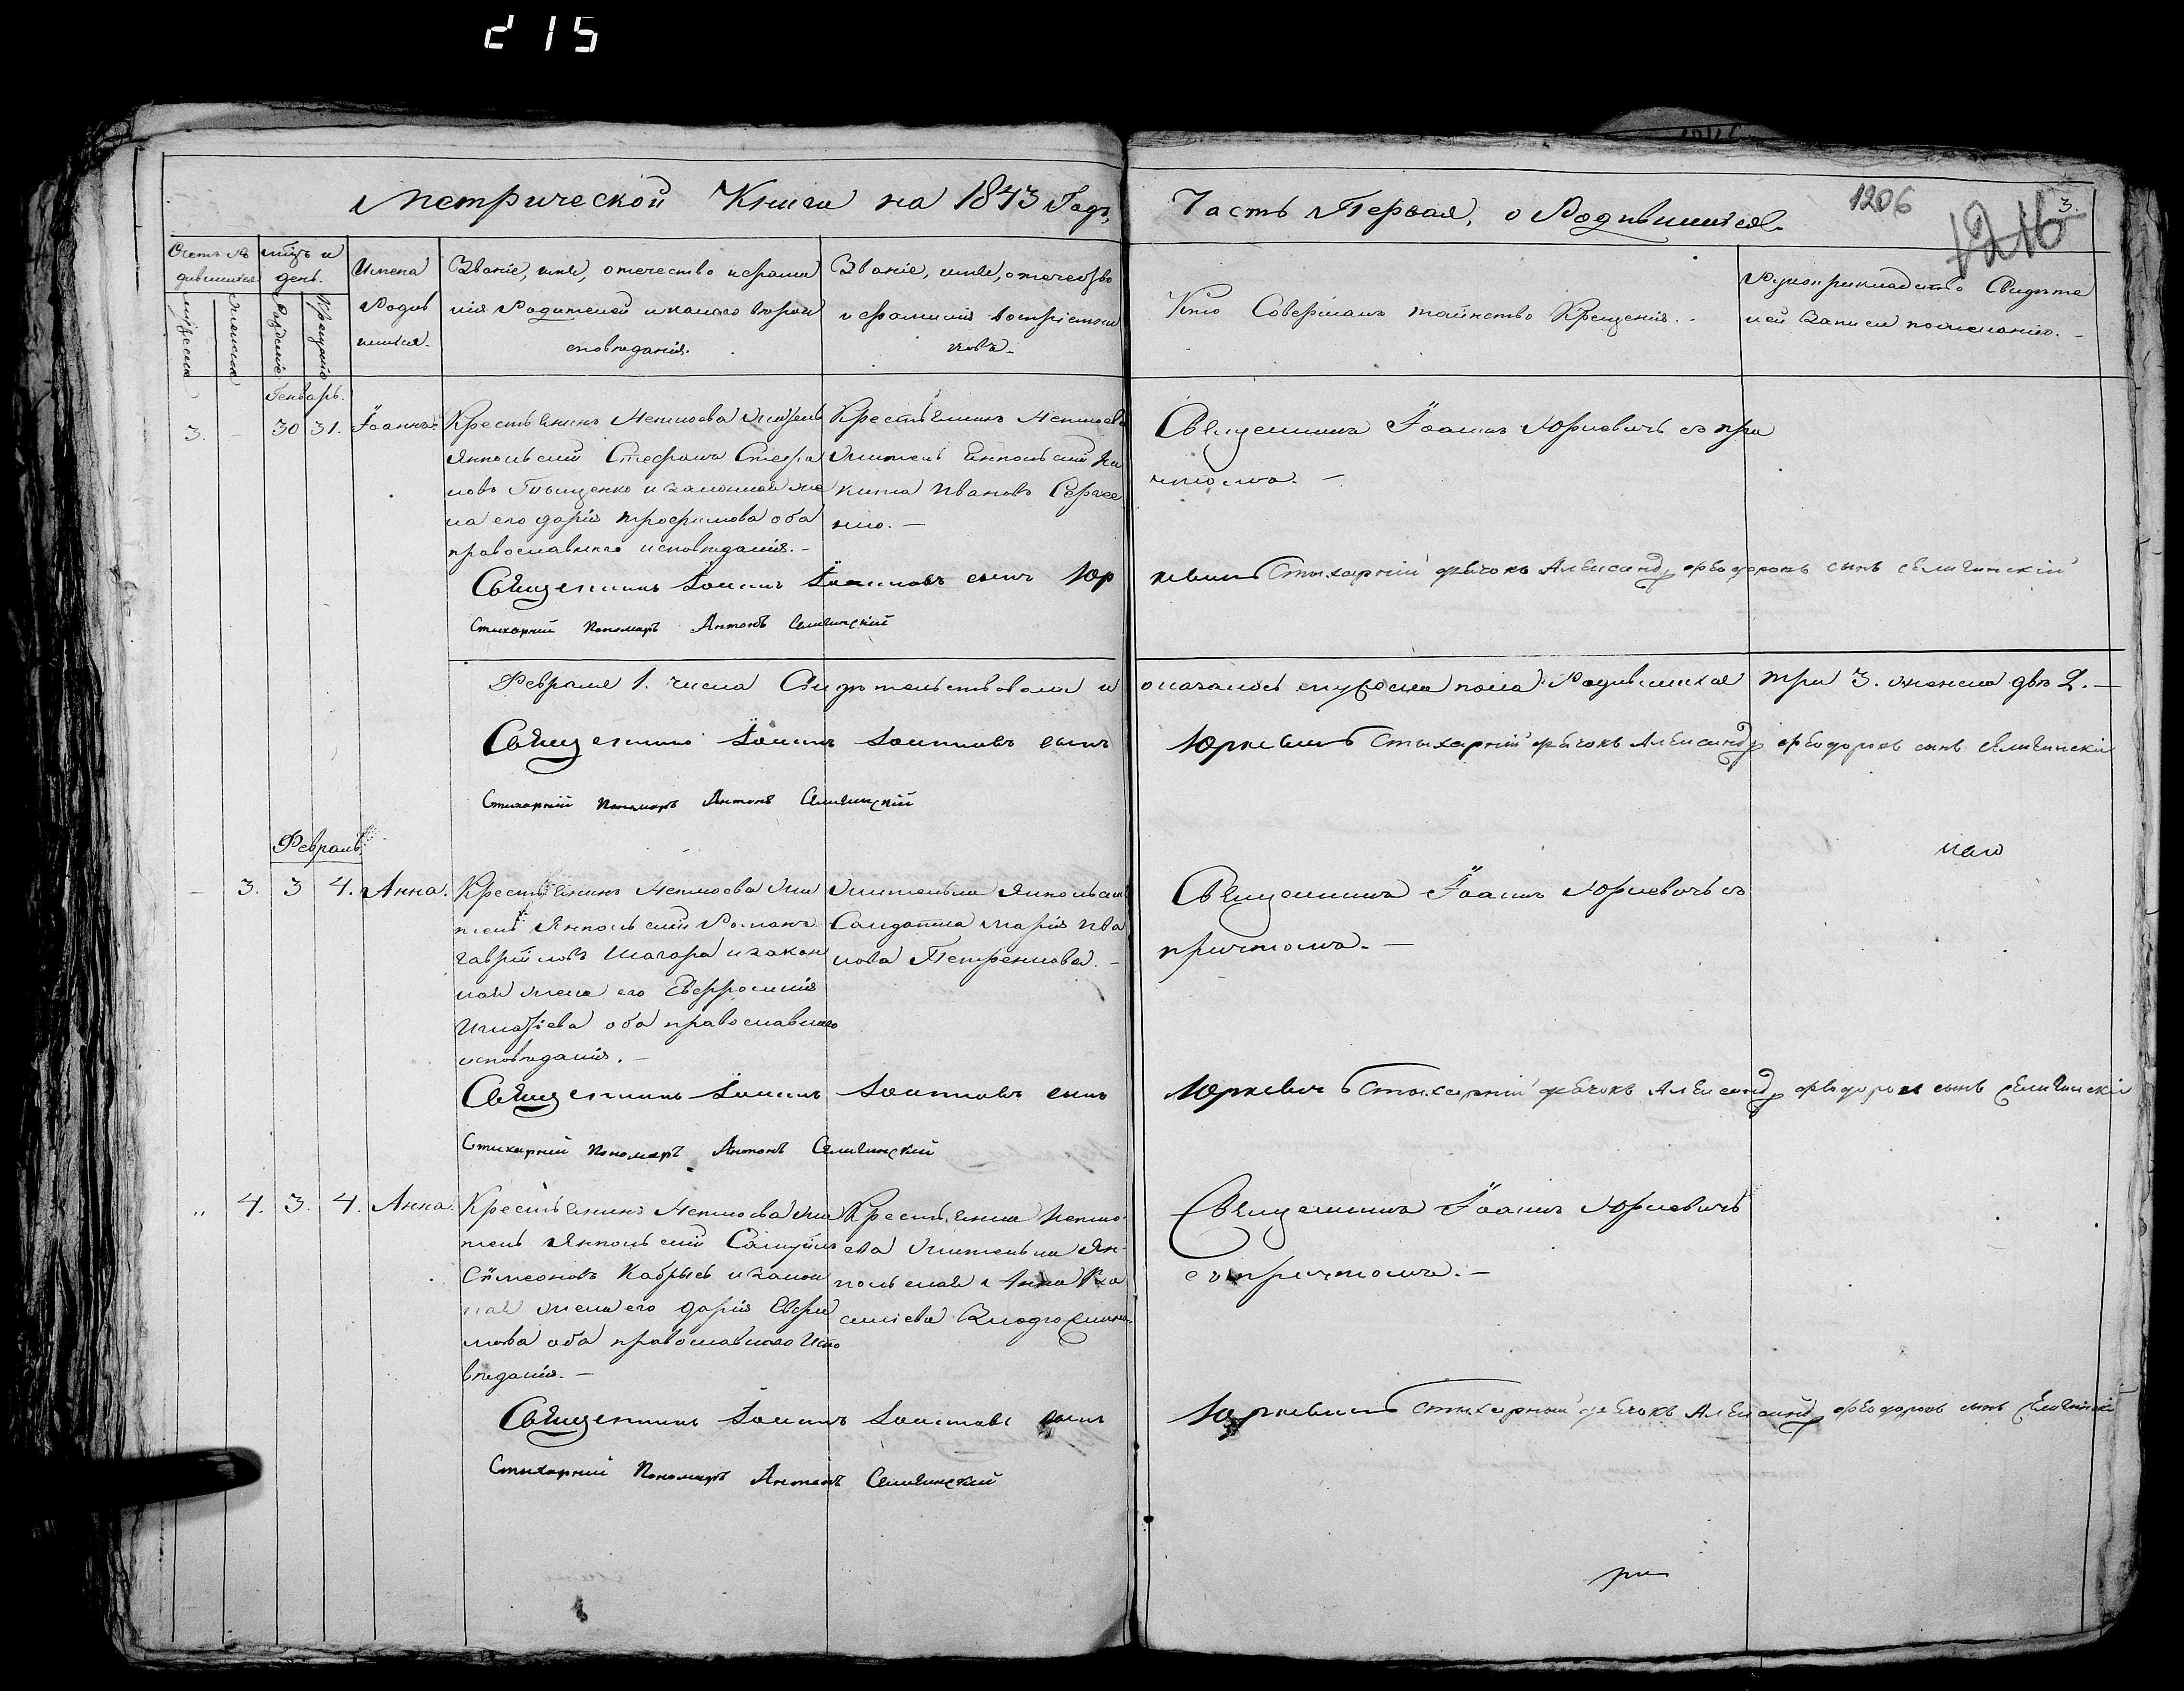 215
Метрической Книги на 1843 Годъ,
Часть Первая, о Родившихся.
1206
1216
3.
Счетъ Ро
дившихся
мѣсяцъ и
день.
Имена
Родив
шихся.
Званіе, имя, отечество и фами
лія Родителей и какого вѣрои
сповѣданія.
Званіе, имя, отечество
и фамилія воспріемни
ковъ.
Кто Совершалъ таинство Крещенія.
Рукоприкладство Свидѣте
лей Записи по желанію.
мужеска
женска
Рожденія
Крещенія
Генварь.
3. - 30 31. Іоаннъ.
Крестьянинъ Житель
Янпольскій Стефанъ Стефа
новъ Тыщенко и законная же
на его Дарія Трофимова оба
православнаго исповѣданія. -
Крестьянинъ
житель Янпольскій Ни
кита Ивановъ Сергее
нко. -
Священникъ Іоаннъ Юркевичъ съ при
чтомъ. -
Священникъ Іоаннъ Іоанновъ сынъ Юр
кевичъ Стихарній дьячокъ Александръ Феодоровъ сынъ Селигинскій
Стихарній Пономарь Антонъ Селигинскій
Февраля 1. числа Свидѣтельствовали и
оказалось мужеска пола Родившихся три 3. женска двѣ 2. -
Священникъ Іоаннъ Іоанновъ сынъ
Юркевичъ Стихарній дьячокъ Александръ Феодоровъ сынъ Селигинскій
Стихарній Пономарь Антонъ Селигинскій
Февраль.
- 3. 3 4. Анна.
Крестьянинъ Жи
тель Янпольскій Романъ
Гавріиловъ Шагара и закон
ная жена его Евфросинія
Игнатіева оба православнаго
исповѣданія. -
Жителька Янпольская
Солдатка Марія Ива
нова Петренкова. -
Священникъ Іоаннъ Юркевичъ съ
причтомъ. -
Священникъ Іоаннъ Іоанновъ сынъ
Юркевичъ Стихарній дьячокъ Александръ Феодоровъ сынъ Селигинскій
Стихарній Пономарь Антонъ Селигинскій
„ 4. 3. 4. Анна.
Крестьянинъ Жи
тель Янпольскій Самуилъ
Сѵмеоновъ Кабрысь и закон
ная жена его Дарія Евфи
мова оба православнаго Испо
вѣданія. -
Крестьянка
жителька Ян-
польская Анна
Священникъ Іоаннъ Юркевичъ
съ причтомъ. -
Священникъ Іоаннъ Іоанновъ сынъ
Юркевичъ Стихарный дьячокъ Александръ Феодоровъ сынъ Селигинскій
Стихарній Пономарь Антонъ Селигинскій